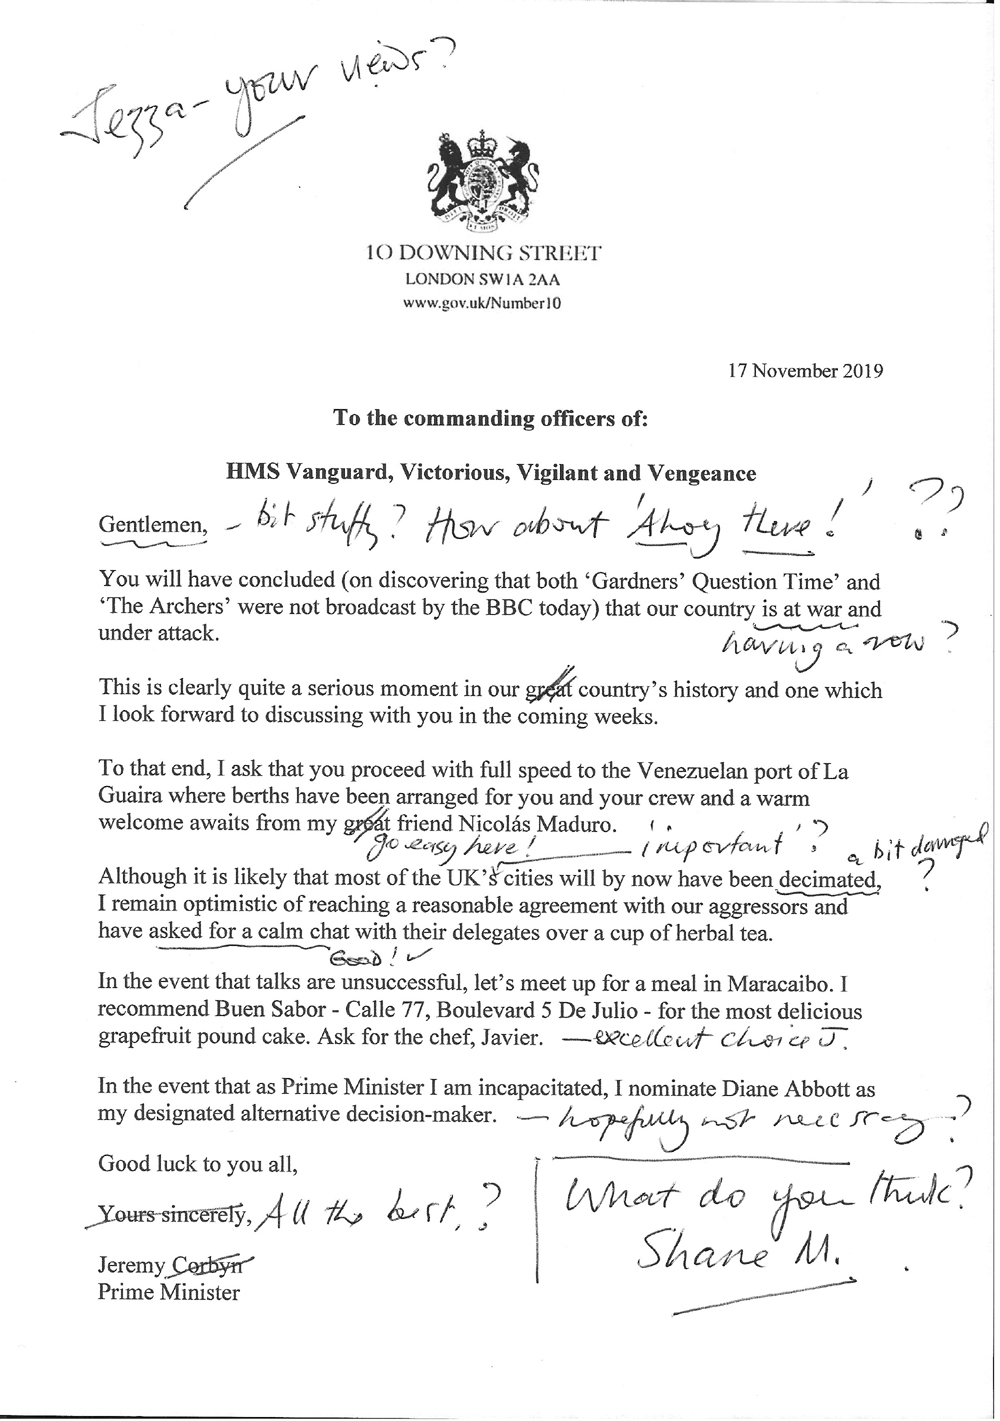 Jezza - your views?
10 DOWNING STREET
LONDON SW1A 2AA
www.gov.uk/Number10
17 November 2019
To the commanding officers of:
HMS Vanguard, Victorious, Vigilant and Vengeance
Gentlemen, - bit stuffy? How about 'Ahoy there!' ??
You will have concluded (on discovering that both ‘Gardners’ Question Time’ and
‘The Archers’ were not broadcast by the BBC today) that our country is at war and
under attack.
having a row?
This is clearly quite a serious moment in our great country’s history and one which
I look forward to discussing with you in the coming weeks.
To that end, I ask that you proceed with full speed to the Venezuelan port of La
Guaira where berths have been arranged for you and your crew and a warm
welcome awaits from my great friend Nicolás Maduro.
go easy here! 'important'? a bit damaged?
Although it is likely that most of the UK’s cities will by now have been decimated,
I remain optimistic of reaching a reasonable agreement with our aggressors and
have asked for a calm chat with their delegates over a cup of herbal tea.
Good! ✓
In the event that talks are unsuccessful, let’s meet up for a meal in Maracaibo. I
recommend Buen Sabor - Calle 77, Boulevard 5 De Julio - for the most delicious
grapefruit pound cake. Ask for the chef, Javier. - excellent choice J.
In the event that as Prime Minister I am incapacitated, I nominate Diane Abbott as
my designated alternative decision-maker. - hopefully not necessary?
Good luck to you all,
Yours sincerely, All the best,?
Jeremy Corbyn
Prime Minister
What do you think?
Shane M.